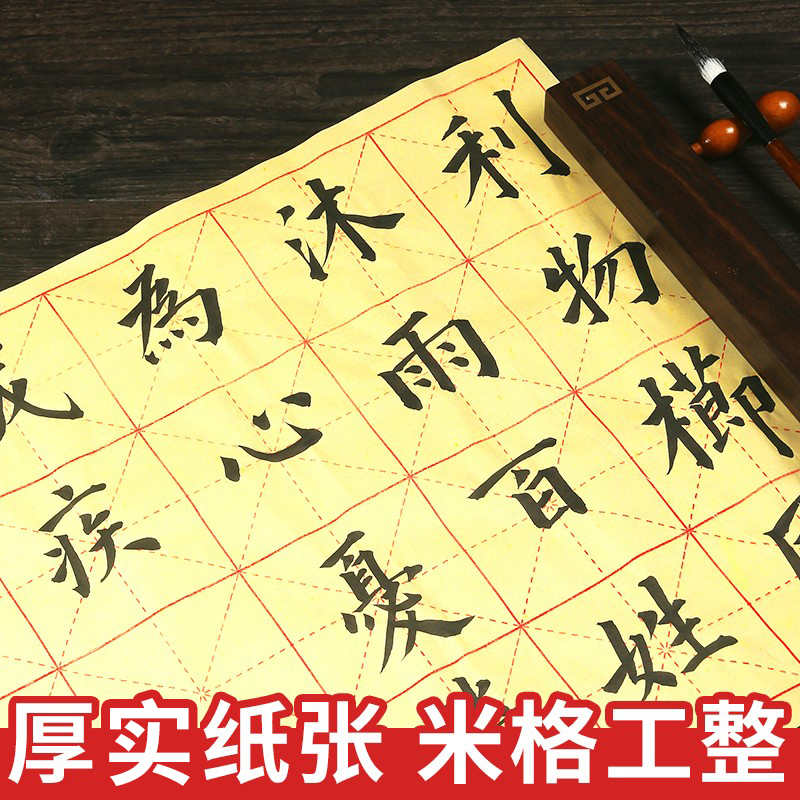 利物櫛
沐雨百姓
為心憂
疾
厚实纸张 米格工整